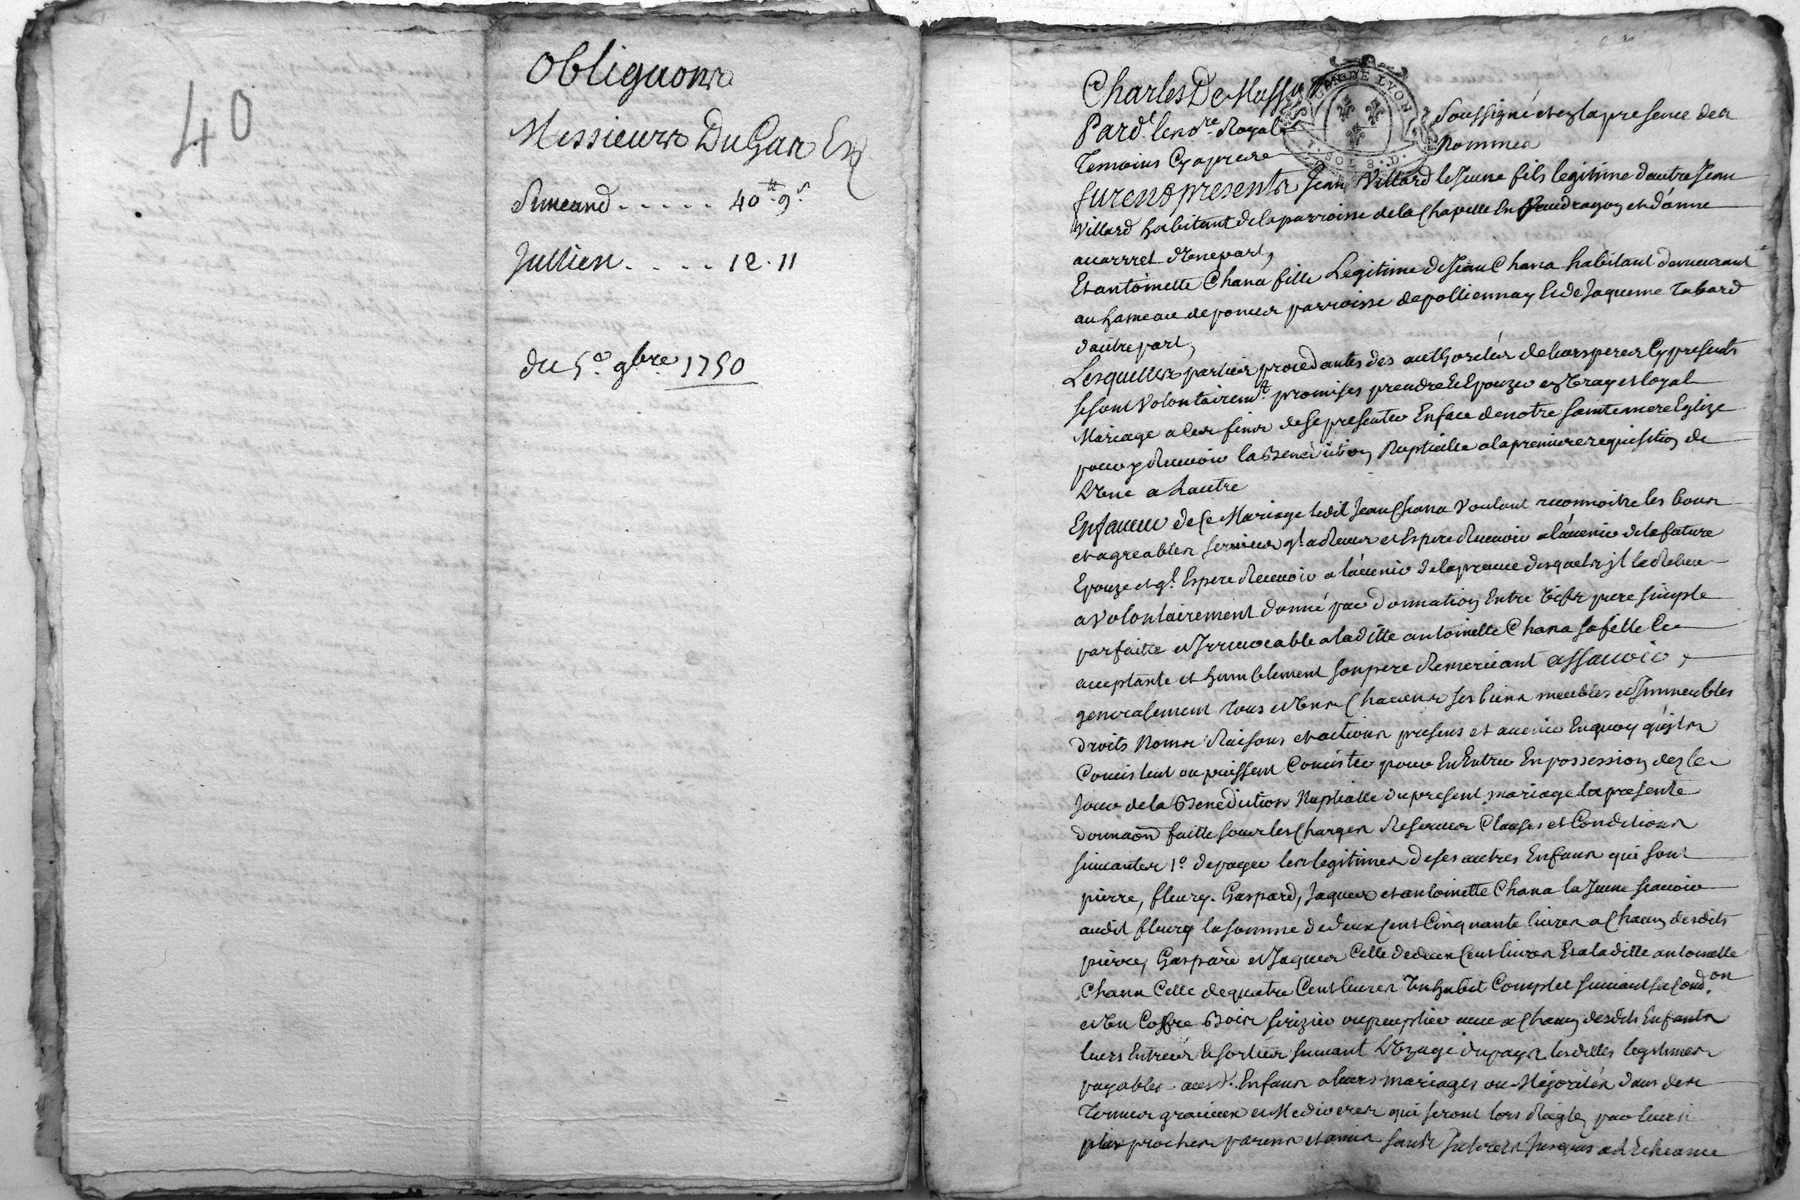 40
Obligaons
Messieurs DuGar Et
Simeand ..... 40ᵗᵗ 9ˢ
Jullien ..... 12 . 11
du 5ᵉ 9bre 1750
GEN. DE LYON
1. SOL 8. D.
Charles De Massa
Pard.ᵗ le noʳᵉ Royal Soussigné et en la presence des
Temoins Cy apres Nommes
furent presents Jean Villard le Jeune fils legitime d'autre Jean
Villard habitant de la parroisse de la Chapelle En Vaudragon et d'anne
d'une part,
Et antoinette Chana fille Legitime de Jean Chana habitant demeurant
au hameau de ponier parroisse de pollionnay et de Jaqueme Tabard
d'autre part,
Lesquelles parties procedantes des authorités de leurs peres Cy presents
se sont Volontairemᵗ promises prendre Et Epouzer en Vray et loyal
Mariage a Ces fins de se presenter En face de notre sainte mere Eglize
pour y Recevoir la Benediction Nuptialle a la premiere requisition de
L'Une a L'autre
En faveur de Ce Mariage ledit Jean Chana Voulant reconnoitre les bons
et agreables services q'l a Receu et Espere Recevoir a l'avenir de la future
Epouze et q'l Espere Recevoir a l'avenir de la preuve desquels jl la Releve
a Volontairement donné par donnation Entre Vifs pure simple
parfaite et Irrevocable a laditte antoinette Chana sa fille Ce
acceptante et humblement son pere Remerciant assavoir,
generalement tous et Uns Chacuns ses biens meubles et Immeubles
droits Noms Raisons et actions presens et avenir En quoy qu'ils
Consistent ou puissent Consister pour En Entrer En possession dez le
Jour de la Benediction Nuptialle du present mariage la presente
donnaõn faitte sous les Charges Reserves Clauses et Conditions
suivantes 1º de payer les legitimes de ses autres Enfans qui sont
pierre, fleury, Gaspard, Jaques et antoinette Chana la Jeune scavoir
audit fleury la somme de deux Cent Cinquante livres a Chacun desdits
pierre, Gaspard et Jaques Celle de deux Cent livres Et a laditte antoinette
Chana Celle de quatre Cent livres Un habit Complet suivant sa Cond.on
et Un Coffre Bois serizier ou peuplier avec a Chacun desdits Enfants
leurs Entrées Et sorties suivant L'Uzage du pays lesdittes legitimes
payables auxd.ᵗ Enfans a leurs mariages ou Majorités dans des
Termes gracieux et Mediocres qui seront lors Réglez par leurs
plus proches parens et amis sans Interets Jusques a L'Echeance